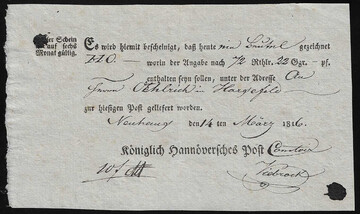 Dieser Schein
ist auf sechs
Monat gültig.
Es wird hiemit bescheinigt, daß heute ein Beutel gezeichnet
H O. worin der Angabe nach 72 Rthlr. 22 Ggr. – pf.
enthalten seyn sollen, unter der Adresse An
Herrn Oehlrich in Harsefeld
zur hiesigen Post geliefert worden.
Neuhaus den 14 ten März 1816.
Königlich Hannöversches Post Comtoir